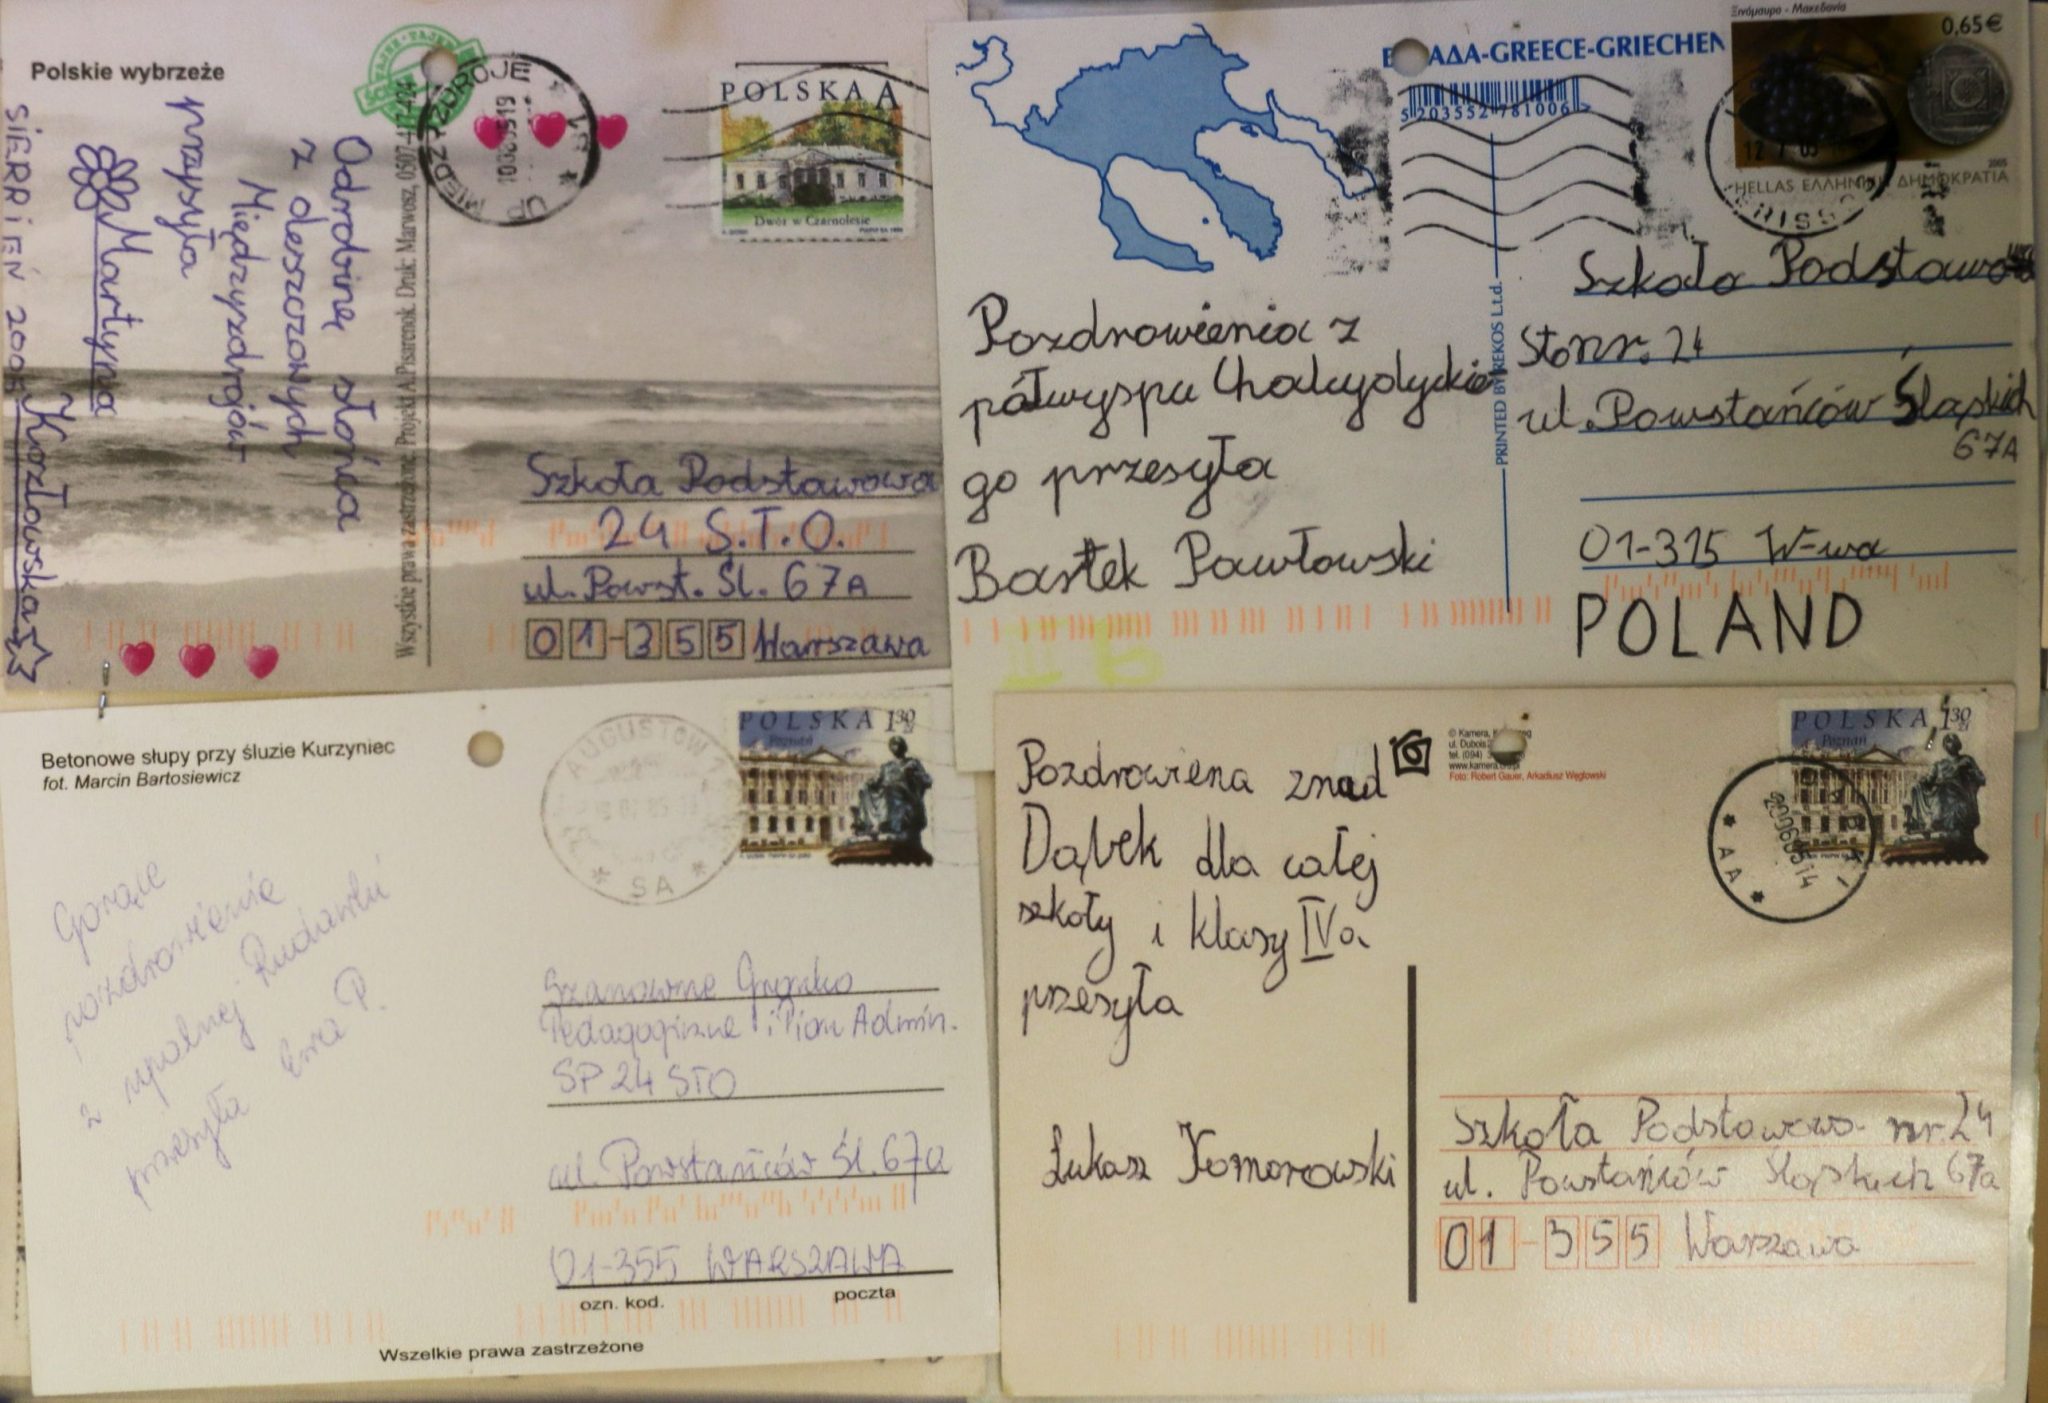 Polskie wybrzeże
Odrobinę słońca
z deszczowych
Międzyzdrojów
przysyła
Martyna
Kozłowska
SIERPIEŃ 2005
Wszystkie prawa zastrzeżone. Projekt A.Pisarenok. Druk: Marwosz, 0507-417-424
POLSKA A
Dwór w Czarnolesie
Szkoła Podstawowa
24 S.T.O.
ul. Powst. Śl. 67A
01-355 Warszawa
ΑΔΑ-GREECE-GRIECHEN
5 203552 781006
Ξινόμαυρο - Μακεδονία
0,65€
2005
HELLAS ΕΛΛΗΝΙΚΗ ΔΗΜΟΚΡΑΤΙΑ
Pozdrowienia z
półwyspu Chalcydyckie
go przesyła
Bartek Pawłowski
PRINTED BY REKOS L.t.d.
Szkoła Podstawowa
Sto nr. 24
ul. Powstańców Śląskich
67A
01-315 W-wa
POLAND
Betonowe słupy przy śluzie Kurzyniec
fot. Marcin Bartosiewicz
AUGUSTÓW
SA
POLSKA 130 zł
Poznań
Gorące
pozdrowienia
z upalnej Rudawki
przesyła Ewa P.
Szanowne Grono
Pedagogiczne i Pion Admin.
SP 24 STO
ul. Powstańców Śl. 67a
01-355 WARSZAWA
ozn. kod.
poczta
Wszelkie prawa zastrzeżone
Pozdrowiena znad
Dąbek dla całej
szkoły i klasy IVa
przesyła
Łukasz Komorowski
© Kamera,
ul. Dubois
tel. (094)
www.kamera.org.pl
Foto: Robert Gauer, Arkadiusz Węglowski
POLSKA 130 zł
Poznań
AA
Szkoła Podstawowa nr. 24
ul. Powstańców Śląskich 67a
01-355 Warszawa